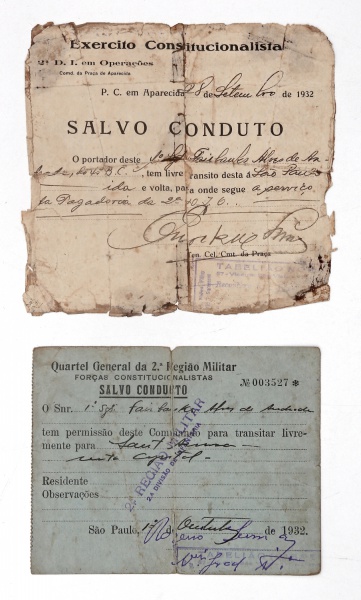 Exercito Constitucionalista
2ª D. I. em Operações
Comd. da Praça de Aparecida
P. C. em Aparecida 28 de Setembro de 1932
SALVO CONDUTO
O portador deste 1º Sgt Fairbanks Alves de
tem livre transito desta á São Paulo
ida e volta, para onde segue a serviço
da Pagadoria da 2ª
Cel. Cmt. da Praça
TABELLIÃO
Quartel General da 2.ª Região Militar
FORÇAS CONSTITUCIONALISTAS
SALVO CONDUCTO
Nº 003527 *
O Snr. 1º Sgt. Fairbanks Alves de Andrade
tem permissão deste Comando para transitar livre-
mente para
nesta capital
Residente
Observações
2ª REGIÃO MILITAR
2ª DIVISÃO DE
São Paulo, 1º de Outubro de 1932.
TABELLIÃO